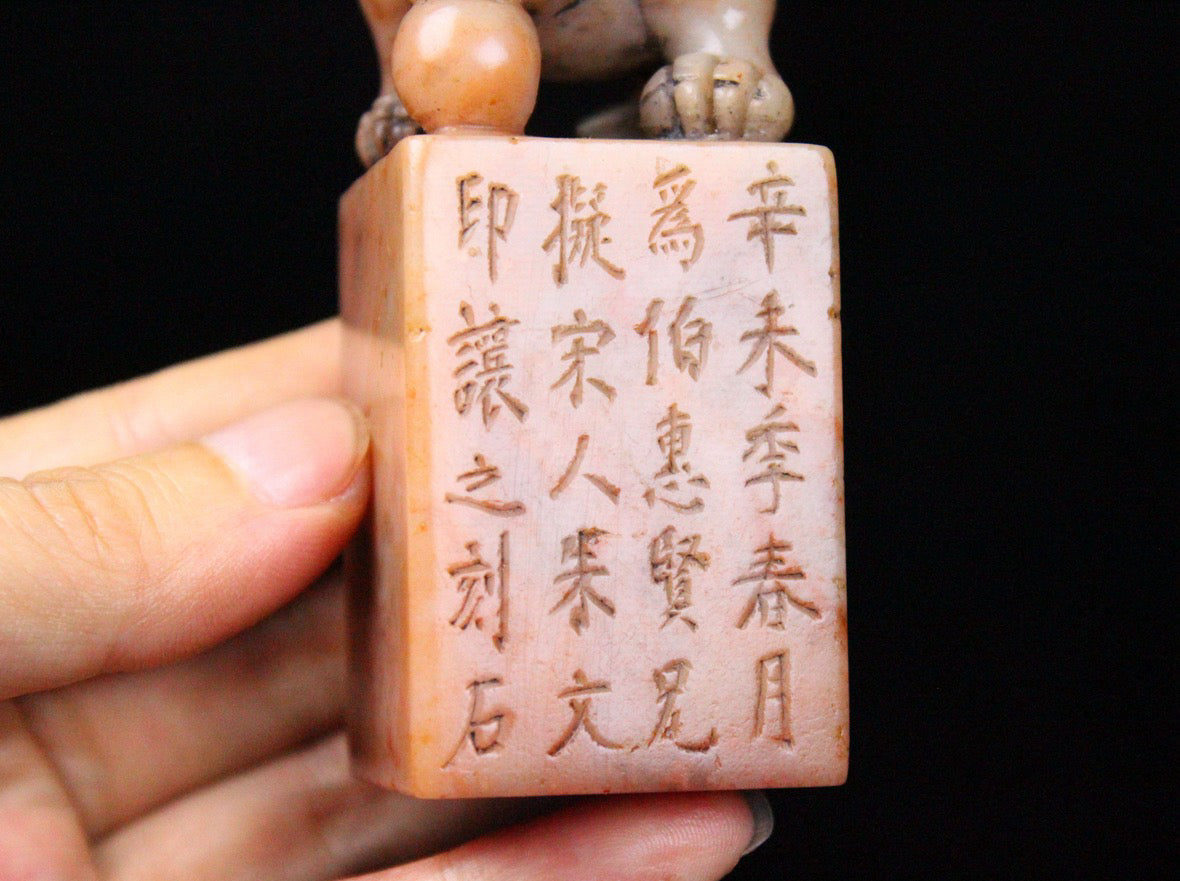 辛未季春月
為伯惠賢兄
擬宋人朱文
印讓之刻石